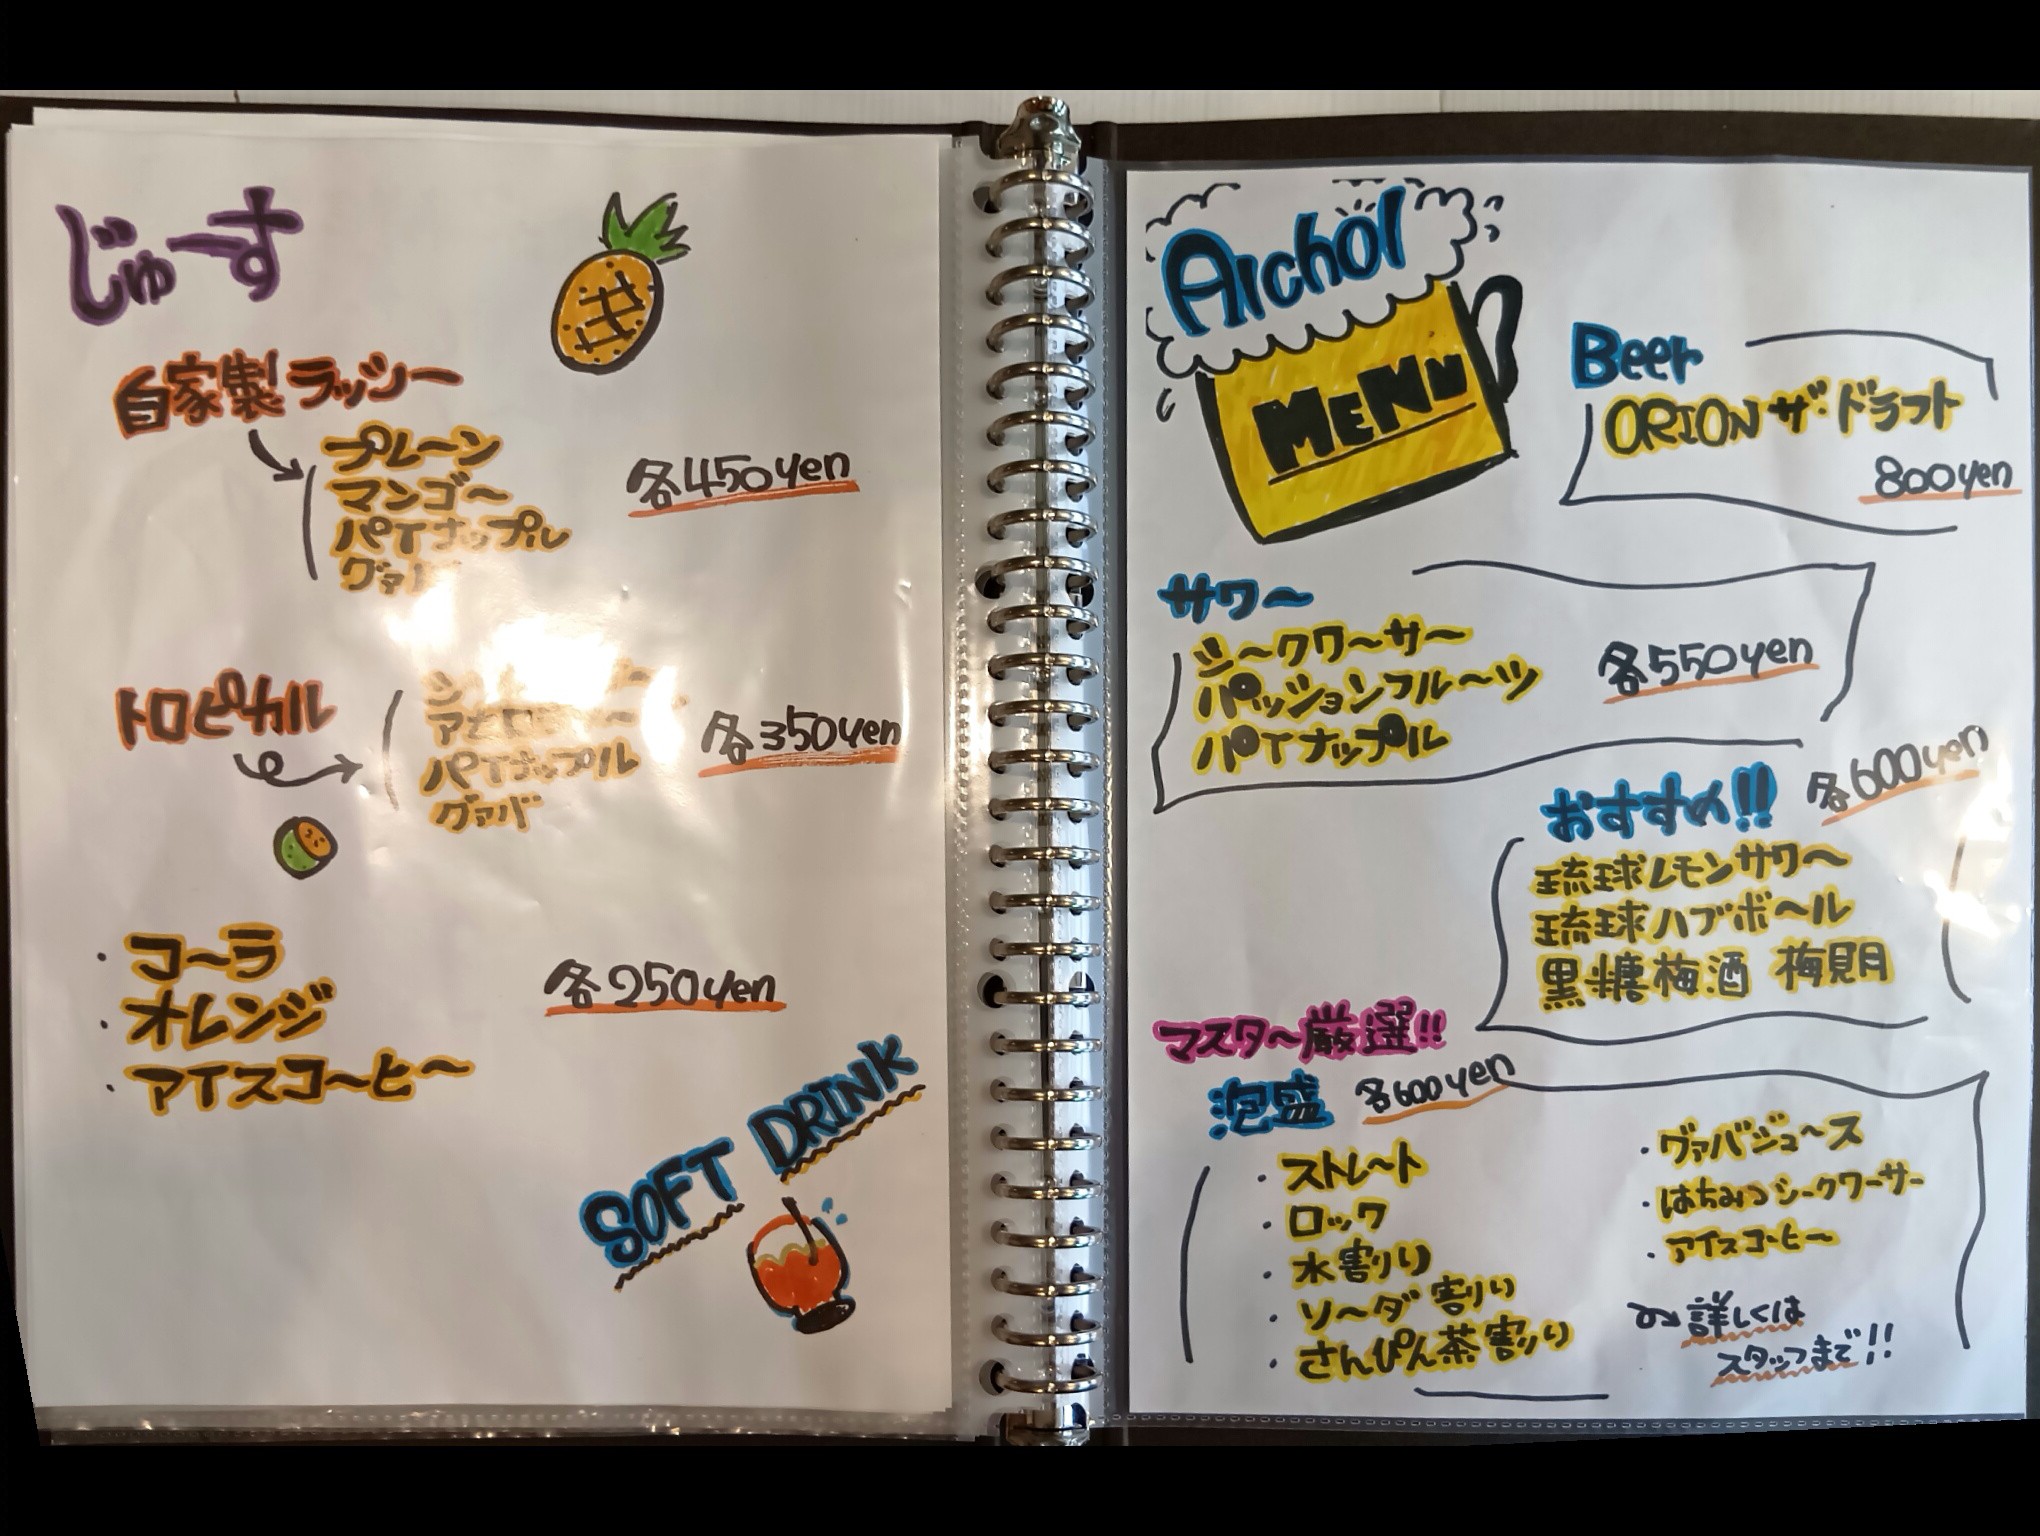 じゅーす
自家製ラッシー
プレーン
マンゴー
パイナップル
グァバ
各450yen
トロピカル
パイナップル
グァバ
各350yen
・コーラ
・オレンジ
・アイスコーヒー
各250yen
SOFT DRINK
Alchol
MENU
Beer
ORION ザ・ドラフト
800yen
サワー
シークワーサー
パッションフルーツ
パイナップル
各550yen
おすすめ!!
各600yen
琉球レモンサワー
琉球ハブボール
黒糖梅酒 梅見月
マスター厳選!!
泡盛 各600yen
・ストレート
・ロック
・水割り
・ソーダ割り
・さんぴん茶割り
・グァバジュース
・はちみつシークワーサー
・アイスコーヒー
詳しくは
スタッフまで!!